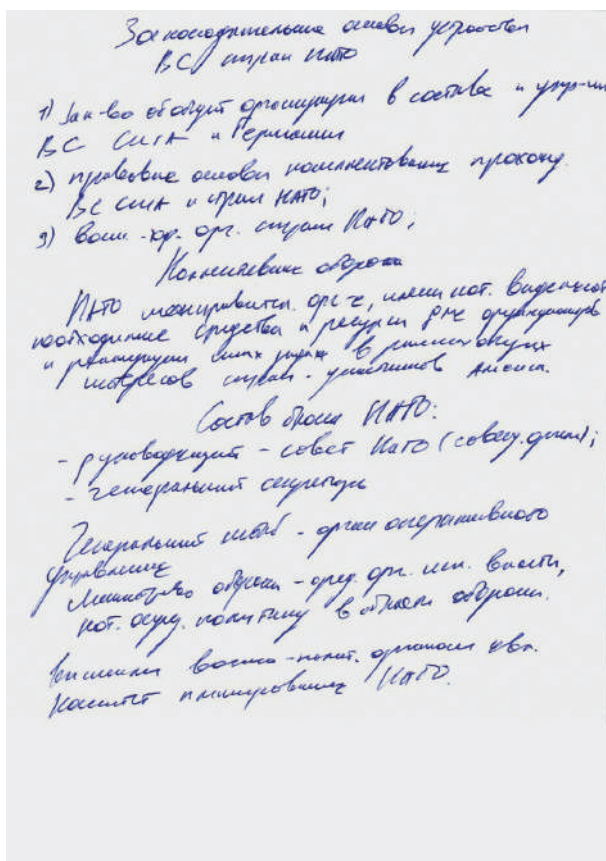 Законодательные основы устройства
ВС стран НАТО
1) Зак-во об общ. организации в составе и упр-ии
ВС США и Германии
2) правовые основы комплектования прохожд.
ВС США и стран НАТО;
3) воен.-юр. орг. стран НАТО;
Коллективная оборона
НАТО межправител. орг-я, имеющ. кот.
необходимые средства и ресурсы для
и реализации своих задач в
интересов стран-участников Альянса.
Состав блока НАТО:
- руководящий - совет НАТО (совещ. орган);
- генеральный секретарь
Генеральный штаб - орган оперативного
управления
Министерство обороны - фед. орг. исп. власти,
кот. осущ. политику в области обороны.
Высшим военно-полит. органом явл.
Комитет планирования НАТО.